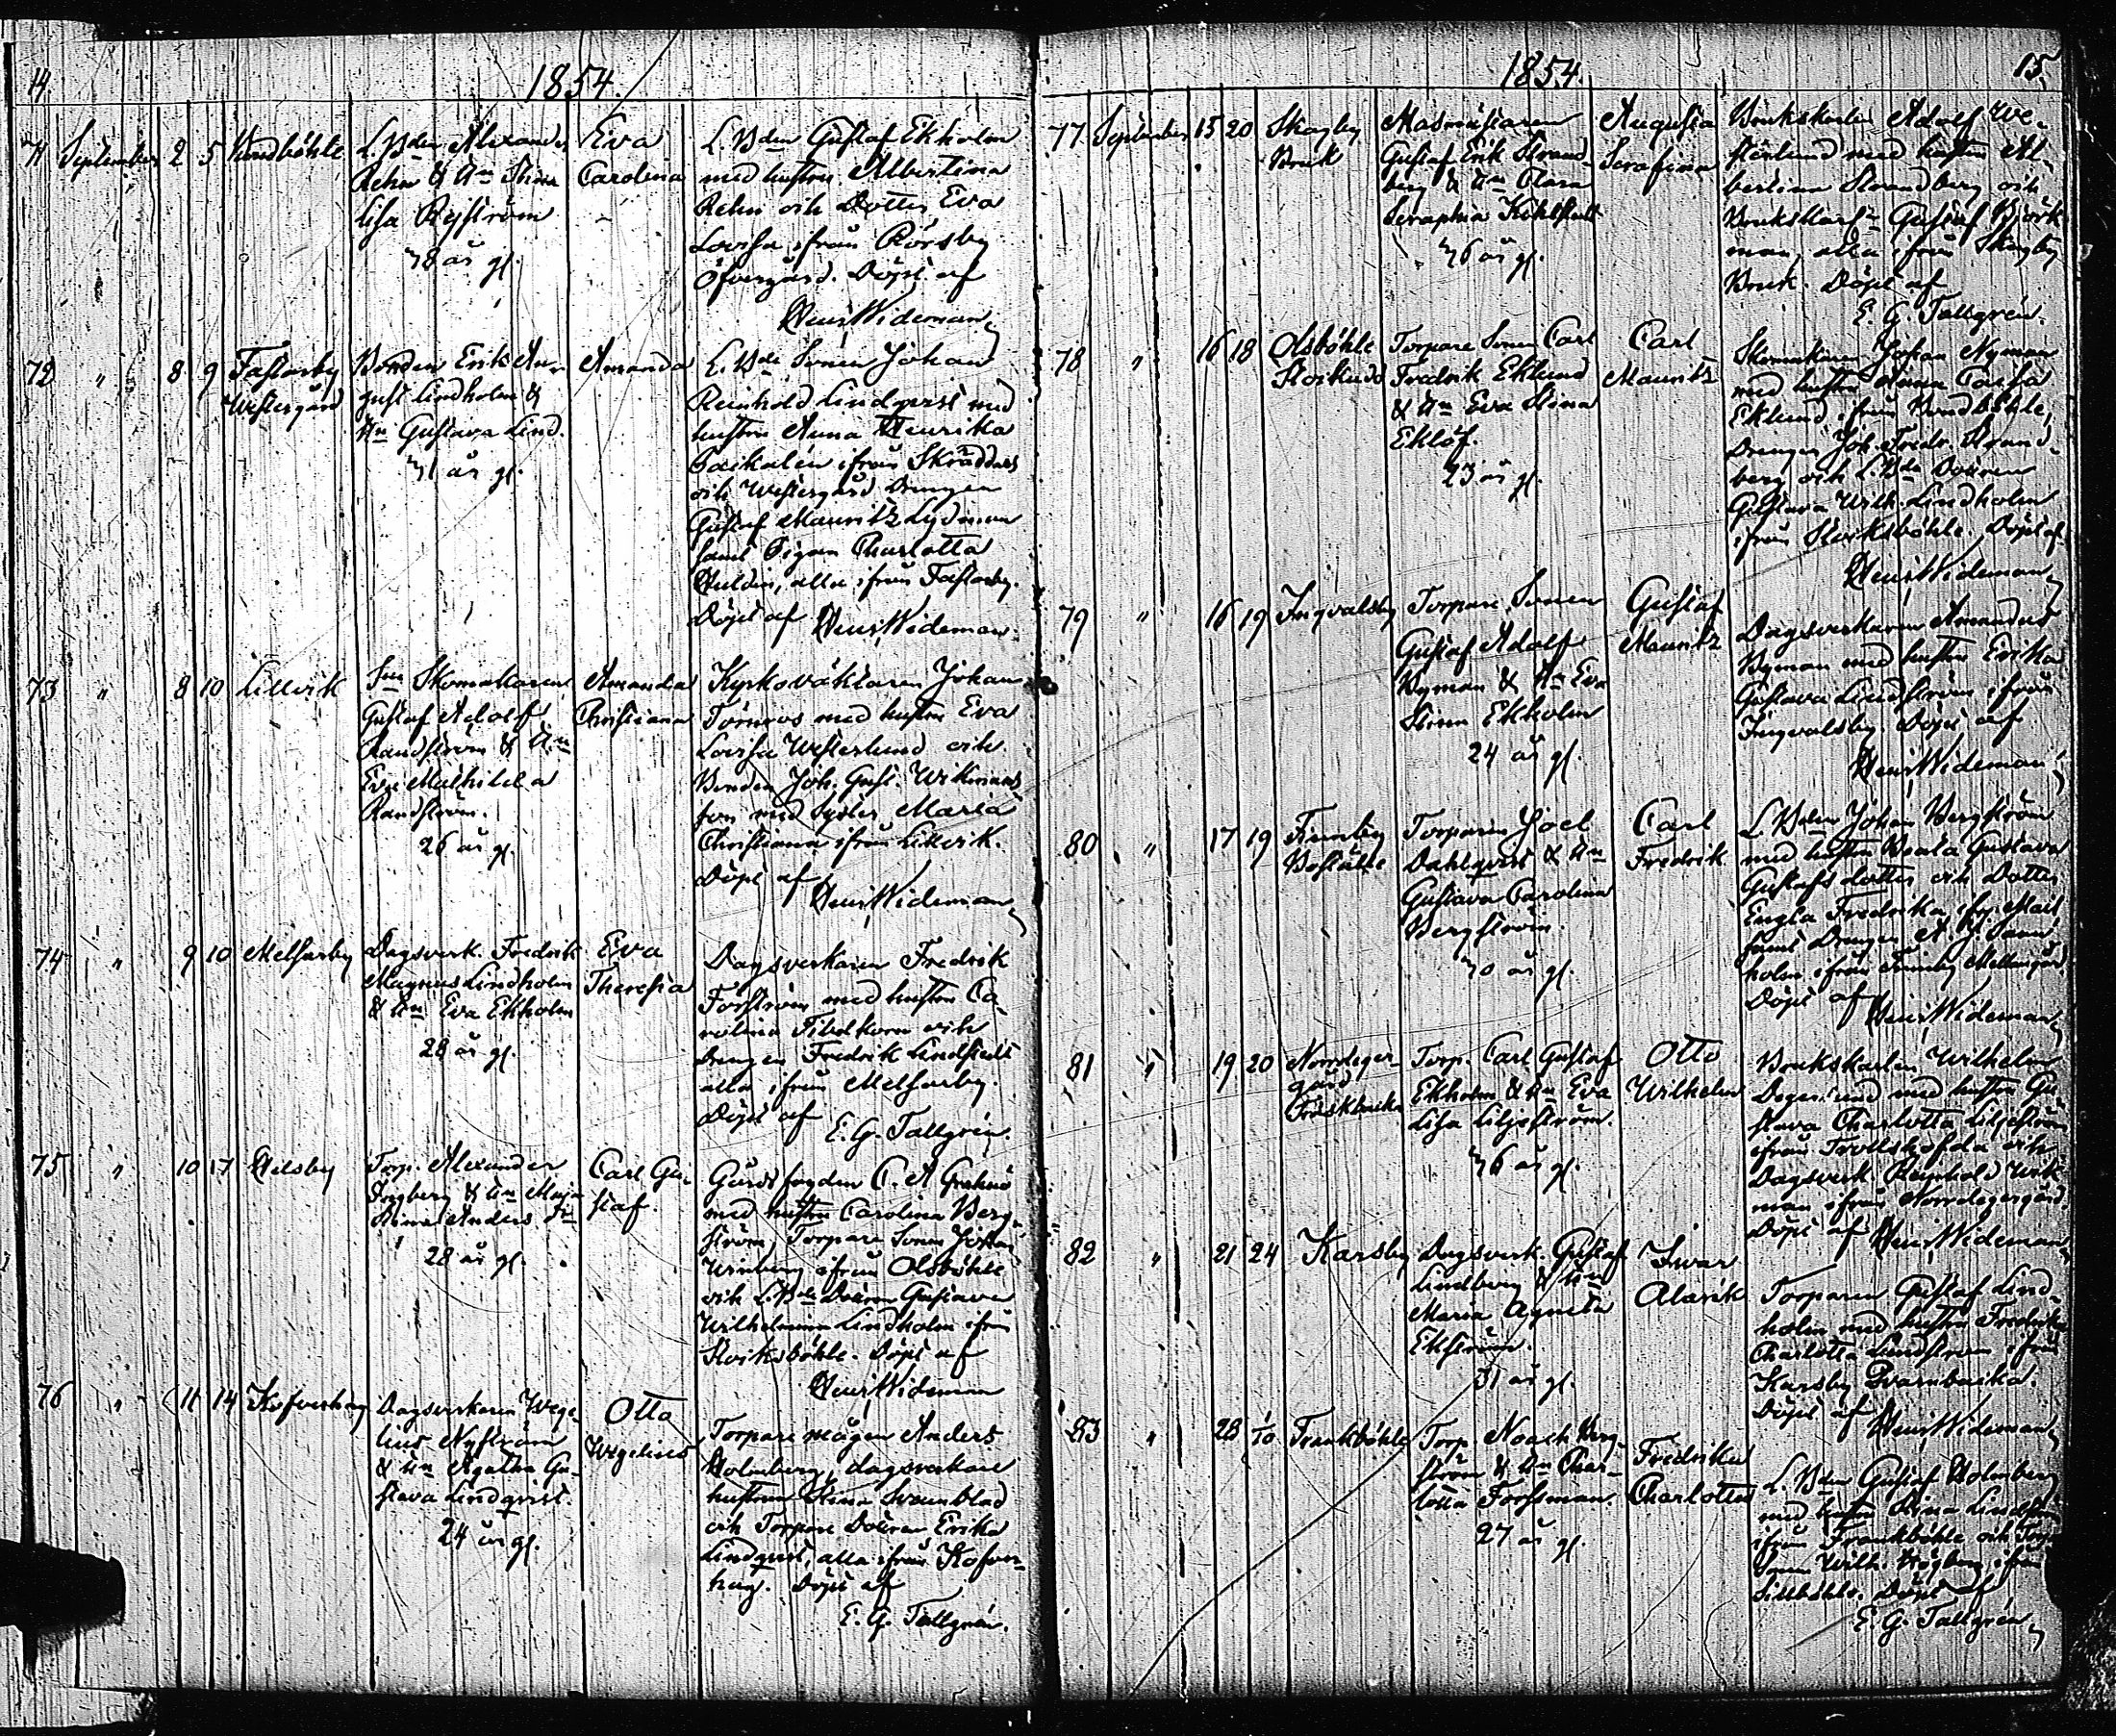 14
1854.
71 September 2 5
L. Bden Alexander
Rehn & Hn Stina
Lisa Rejström
38 år gl.
Eva
Carolina
L. Bden Gustaf Ekholm
med hustru Albertina
Rehn och Dotter Eva
Lovisa ifrån Rörsby
Öfvergård. Döpt af
Henr Wideman
72 " 8 9 Fastarby
Westergård
Bonden Erik Au-
gust Lindholm &
Hn Gustava Lind.
31 år gl.
Amanda
L. Bde Sonen Johan
Reinhold Lindqvist med
hustru Anna Henrika
ifrån Skräddars
och Westergård Drengen
Gustaf Mauritz Lydman
samt Pigan Charlotta
Huldin, alla ifrån Fastarby.
Döpt af Henr Wideman.
73 " 8 10 Lillvik
Skomakaren
Gustaf Adolf
Randström & Hn
Eva Mathilda
Randström.
26 år gl.
Amanda
Christiana
Kyrkoväktaren Johan
Törnroos med hustru Eva
Lovisa Westerlund och
Bonden Joh. Gust. Wikmans
son med syster Maria
Christiana ifrån Lillvik.
Döpt af
Henr Wideman
74 " 9 10 Melsarby
Dagsverk. Fredrik
Magnus Lindholm
& Hn Eva Ekholm
28 år gl.
Eva
Theresia
Dagsverkaren Fredrik
Forsström med hustru Ca-
rolina Tibelkorn och
Drengen Fredrik Lindstedt
alla ifrån Melsarby.
Döpt af
E. G. Tallgrén.
75 " 10 17 Helsby
Torp. Alexander
& Hn Maja
Stina Anders Dr
28 år gl.
Carl Gu-
staf
Gårdsfogden C. A.
med hustru Carolina Berg-
ström, Torpare Sonen Johan
ifrån Olsböhle
och L. Bde Dottren Gustava
Wilhelmina Lindholm ifrån
Storiksböhle. Döpt af
Henr Wideman
76 " 11 14 Kofverhag
Dagsverkaren Wege-
lius Nyström
& Hn Agatha Gu-
stava Lindqvist.
24 år gl.
Otto
Wegelius
Torpare mågen Anders
Holmberg, dagsverkare
hustrun Stina Svanblad
och Torpare Dottren Erika
Lindqvist, alla ifrån Kofver-
hag. Döpt af
E. G. Tallgrén.
1854.
15
77 September 15 20 Skogby
Bruk
Masmästaren
Gustaf Erik Strand-
berg & Hn Clara
Seraphia
36 år gl.
Augusta
Serafina
Brukskarlen Adolf We-
sterlund med hustru Al-
bertina Strandberg och
Gustaf Björk-
man, alla ifrån Skogby
Bruk. Döpt af
E. G. Tallgrén.
78 " 16 18 Olsböhle
Torpare Sonen Carl
Fredrik Eklund
& Hn Eva Stina
Eklöf.
23 år gl.
Carl
Mauritz
Skomakaren Johan Nyman
med hustru Anna Caisa
Eklund, ifrån
Drengen Joh. Fredr. Strand-
berg och L. Bde Dottren
Gustava Wilh. Lindholm
ifrån Storiksböhle. Döpt af
Henr Wideman
79 " 16 19 Ingvalsby
Torpare Sonen
Gustaf Adolf
Byman & Hn Eva
Stina Ekholm
24 år gl.
Gustaf
Mauritz
Dagsverkaren Amandus
Byman med hustru Erika
Gustava Lindström ifrån
Ingvalsby. Döpt af
Henr Wideman
80 " 17 19 Finnby
Torparen Joel
Dahlqvist & Hn
Gustava Carolina
Bergström.
30 år gl.
Carl
Fredrik
L. Bden Johan Bergström
med hustru Beata Gustava
Gustafsdotter och Dotter
Engla Fredrika
samt Drengen A. J.
holm ifrån Finnby Mellangård.
Döpt af
Henr Wideman
81 " 19 20 Norrdeger-
gård
Torp. Carl Gustaf
Ekholm & Hn Eva
Lisa Liljeström.
36 år gl.
Otto
Wilhelm
Brukskarlen Wilhelm
Degerlund med hustru Gu-
stava Charlotta Liljeström
ifrån Trollshofda och
Dagsverk. Reinhold Wik-
man ifrån Norrdegergård.
Döpt af Henr Wideman
82 " 21 24 Karsby
Dagsverk. Gustaf
Lindberg & Hn
Maria Agneta
Ekström.
31 år gl.
Iwar
Alarik
Torparen Gustaf Lind-
holm med hustru Fredrika
Charlotta Lindström ifrån
Karsby Qvarnbacka.
Döpt af
Henr Wideman
83 " 28 1/10 Trankböhle
Torp. Noach Berg-
ström & Hn Char-
lotta Forsman.
27 år gl.
Fredrika
Charlotta
L. Bden Gustaf Holmberg
med hustru Stina
ifrån Trankböhle och Torp.
Sonen Wilh. Högberg ifrån
Döpt af
E. G. Tallgrén